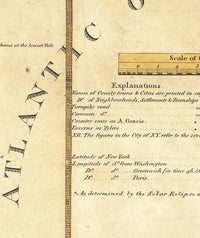 ATLANTIC O
Scale of
Explanations.
Names of County towns & Cities are printed in
Dº. of Neighbourhoods, Settlements & Townships
Turnpike road
Common dº.
Country seats as A. Gracie.
Taverns as Tylers
NB. The figures in the City of N.Y. refer to the
Latitude of New York
Longitude of dº. from Washington
Dº. dº. Greenwich (in time 4h.
Dº. dº. Paris.
*As determined by the Solar Eclipse